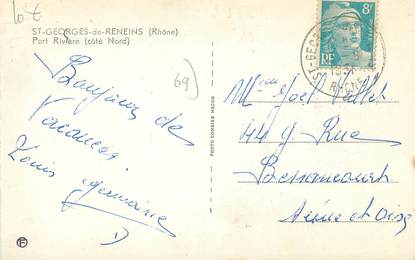 lot
ST-GEORGES-de-RENEINS (Rhône)
Port Rivière (côté Nord)
69)
Bonjour de
Vacances
Louis Germaine
PHOTO COMBIER MACON
8F
RF
ST-GEORGES
RHONE
Mme
44 Rue
Bessancourt
Seine et Oise